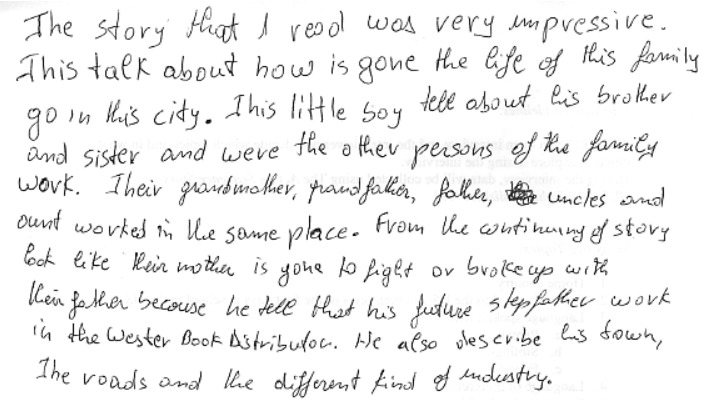 The story that I read was very impressive.
This talk about how is gone the life of this family
go in this city. This little boy tell about his brother
and sister and were the other persons of the family
work. Their grandmother, grandfather, father, uncles and
aunt worked in the same place. From the continuing of story
look like their mother is gone to fight or broke up with
their father becouse he tell that his future stepfather work
in the Wester Book Distributor. He also describe his town,
The roads and the different kind of industry.